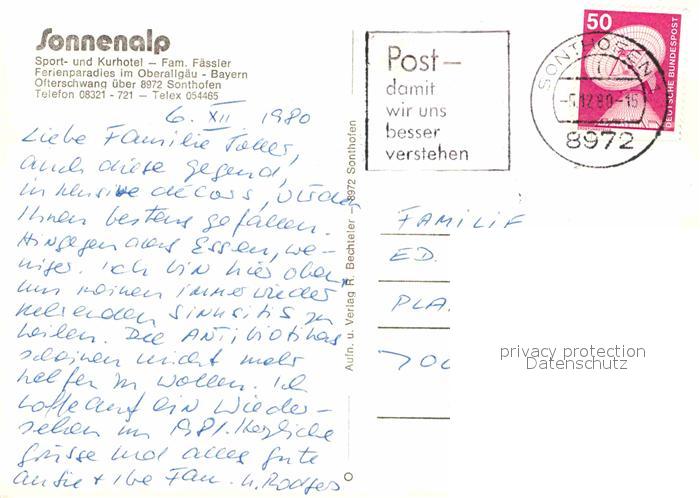 Sonnenalp
Sport- und Kurhotel — Fam. Fässler
Ferienparadies im Oberallgäu - Bayern
Ofterschwang über 8972 Sonthofen
Telefon 08321 - 721 — Telex 054465
6. XII 1980
Liebe Familie
auch diese Gegend,
inklusive décors, würden
Ihnen bestens gefallen.
Hingegen das Essen, we-
niger. Ich bin hier oben,
um meinen immer wieder
kehrenden Sinusitis zu
heilen. Die Antibiotikas
scheinen nicht mehr
helfen zu wollen. Ich
hoffe auf ein Wieder-
sehen im 1981. Herzliche
Grüsse und alles gute
an Sie + Ihe Fam. H. Rodgers
Aufn. u. Verlag R. Bechteler - 8972 Sonthofen
Post —
damit
wir uns
besser
verstehen
SONTHOFEN
12.80-15
8972
50
DEUTSCHE BUNDESPOST
FAMILIE
ED.
PLA.
privacy protection
Datenschutz